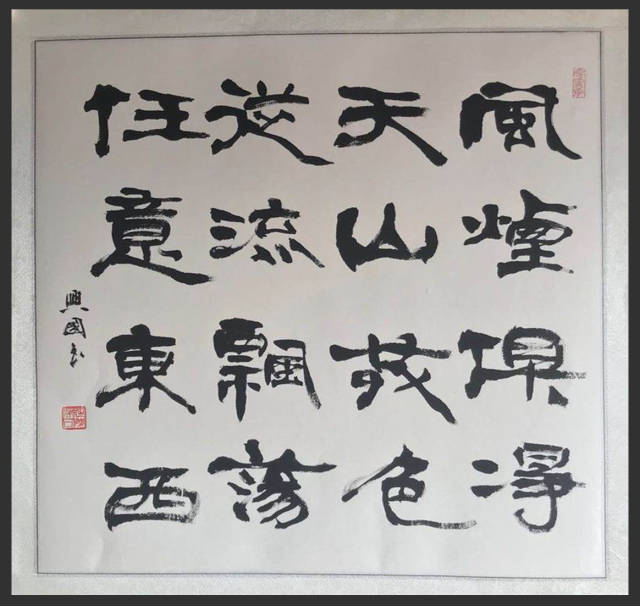 風煙俱淨
天山共色
從流飄蕩
任意東西
興國书